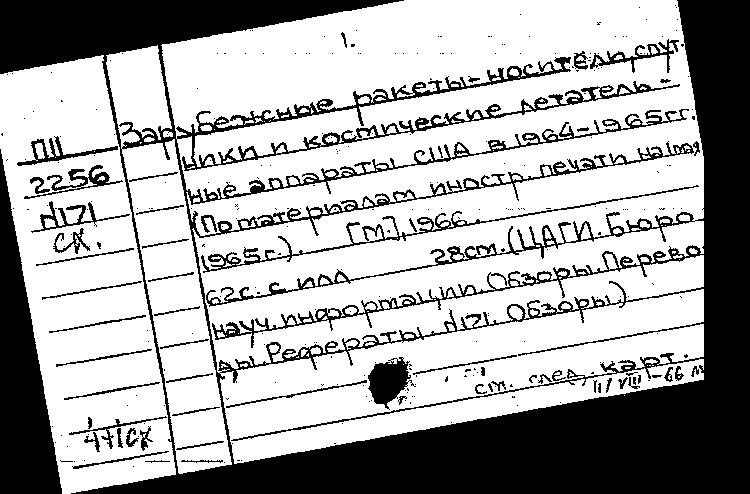 1.
ПII
2256
N171
сх.
Зарубежные ракеты-носители, спут-
ники и космические летатель-
ные аппараты США в 1964-1965гг.
(По материалам иностр. печати на 1 мая
1965г.). [М.], 1966.
62с. с илл 28см. (ЦАГИ. Бюро
науч. информации. Обзоры. Перево-
ды. Рефераты. N171. Обзоры.)
см. след. карт.
11/VIII-66 м
4+1сх